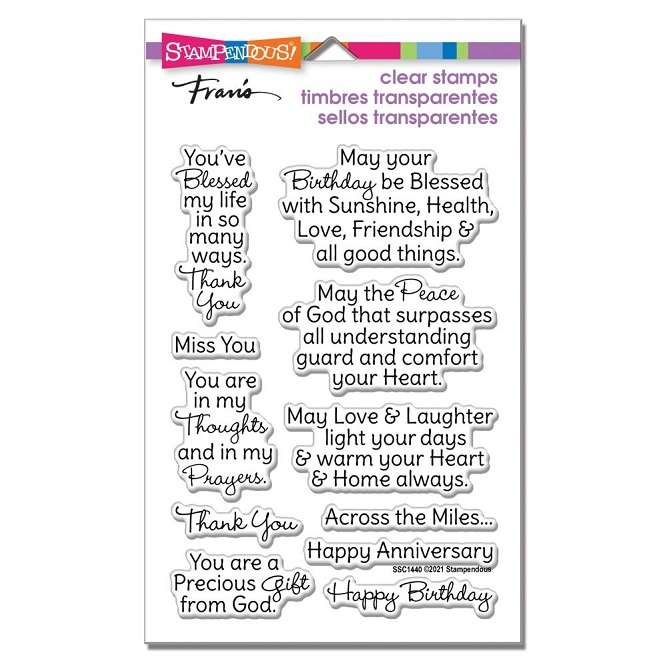 STAMPENDOUS!
Fran's
clear stamps
timbres transparentes
sellos transparentes
You've
Blessed
my life
in so
many
ways.
Thank
You
Miss You
You are
in my
Thoughts
and in my
Prayers.
Thank You
You are a
Precious Gift
from God.
May your
Birthday be Blessed
with Sunshine, Health,
Love, Friendship &
all good things.
May the Peace
of God that surpasses
all understanding
guard and comfort
your Heart.
May Love & Laughter
light your days
& warm your Heart
& Home always.
Across the Miles...
Happy Anniversary
SSC1440 ©2021 Stampendous
Happy Birthday